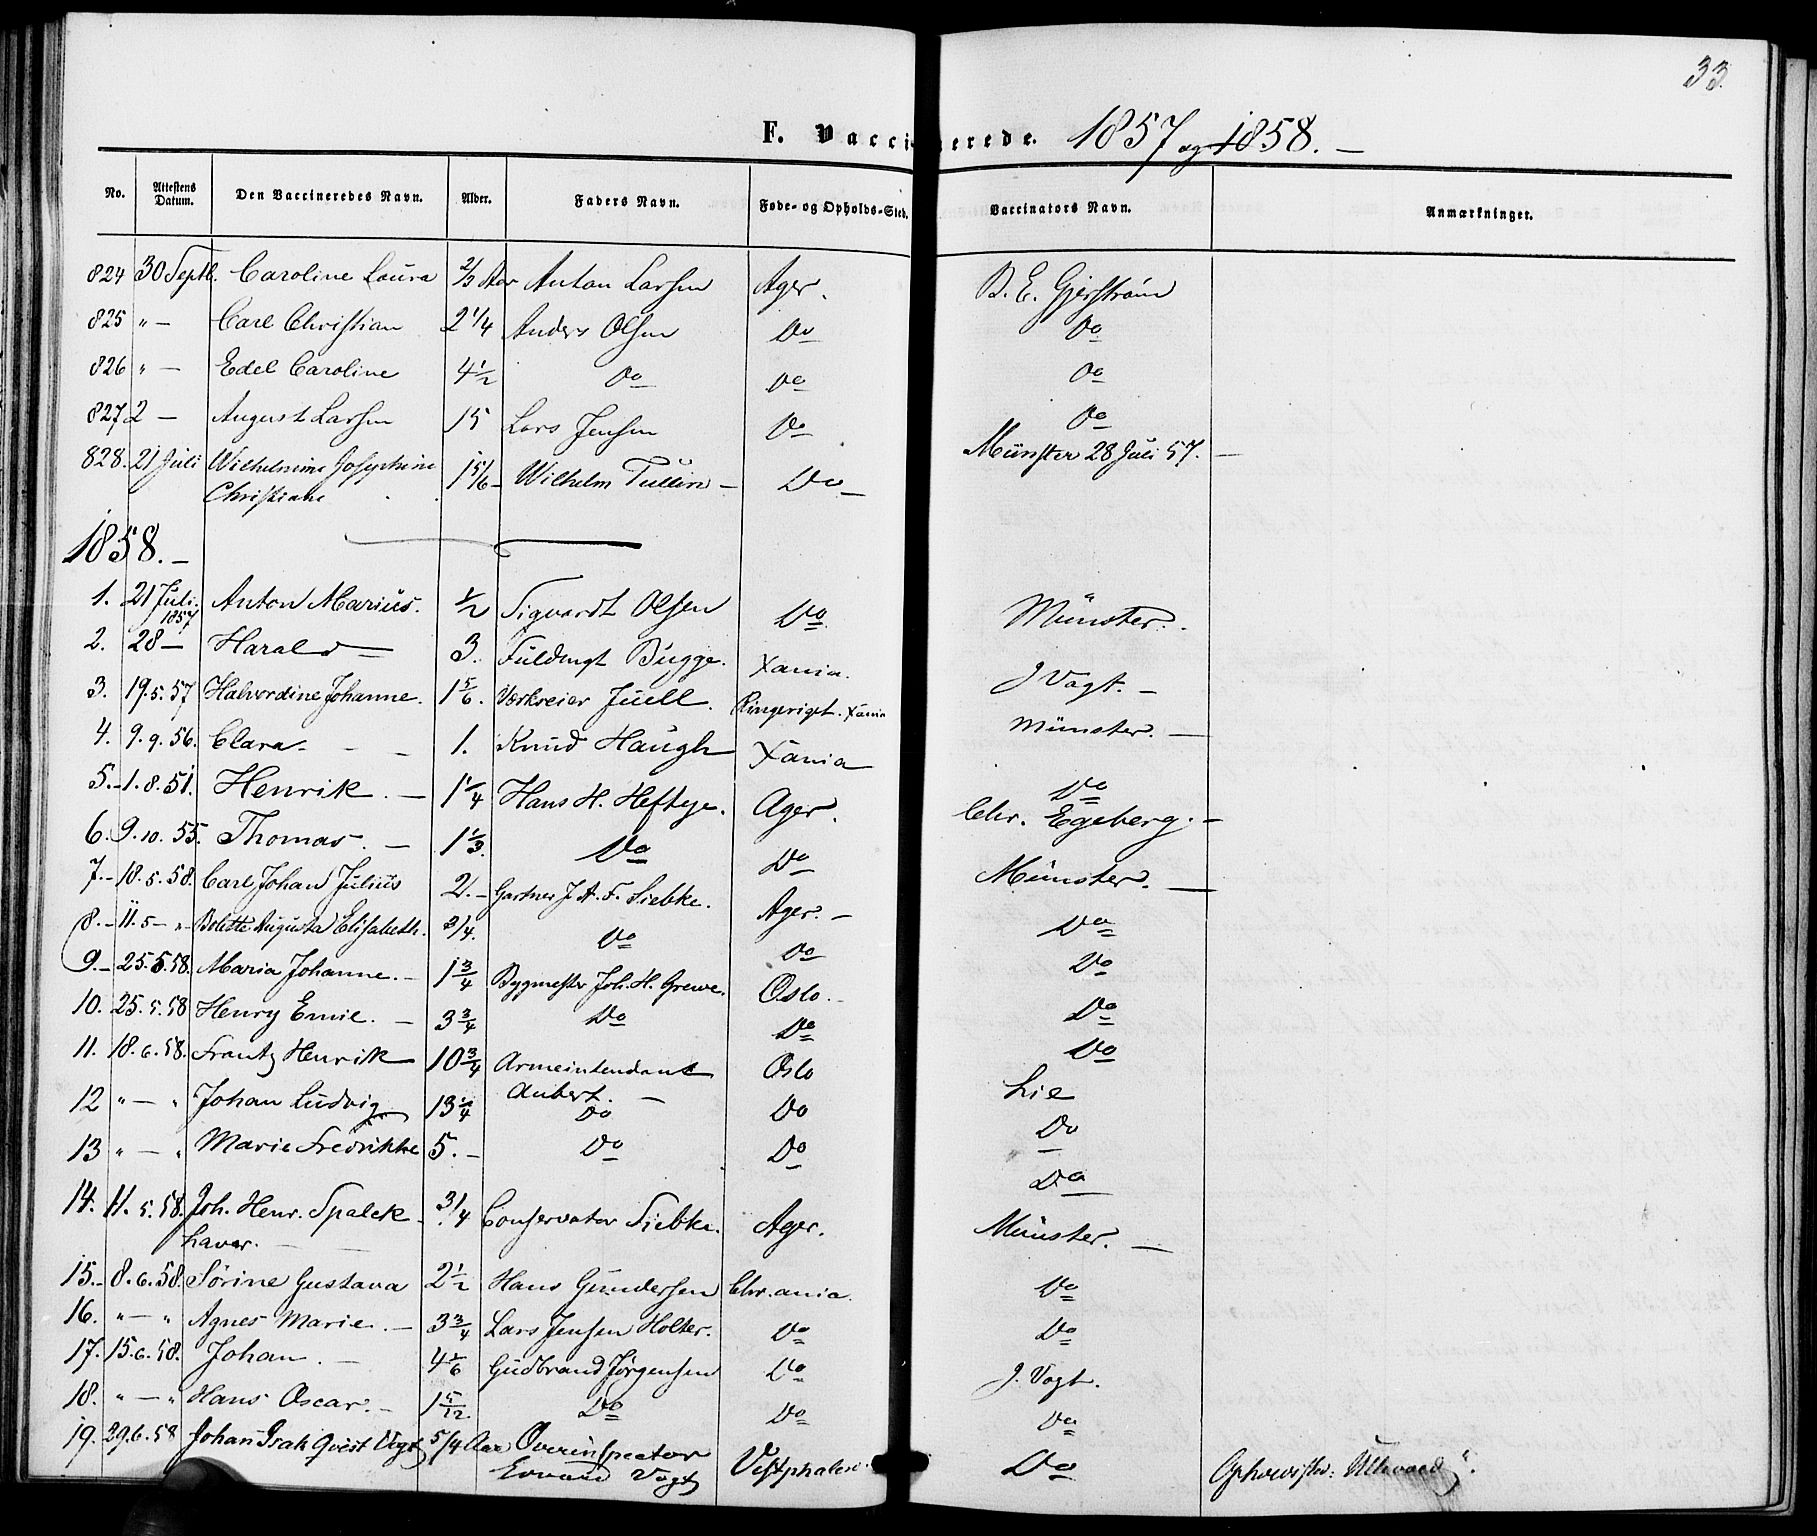 33.
F. Vaccinerede. 1857 og 1858. —
No. Attestens Datum. Den Vaccineredes Navn. Alder. Faders Navn. Føde- og Opholds-Sted. Vaccinators Navn. Anmærkninger.
824 30 Septb. Caroline Laura 2/3 Aar Anton Larsen Ager. B. E. Gjerstrøm
825 " — Carl Christian 2 1/4 Anders Olsen Do Do
826 " — Edel Caroline 4 1/2 Do Do Do
827 2 — August Larsen 15 Lars Jensen Do Do
828. 21 Juli Wilhelmine Josephine 1 5/6 — Wilhelm Tullin — Do — Münster 28 Juli 57. —
Christiane
1858. —
1. 21 Juli 1857 Anton Marius. 1/2 Sigvardt Olsen Do Münster.
2. 28 — Harald — 3. Fuldmgt Bugge. Xania. J Vogt. —
3. 19.5.57 Halvordine Johanne. 1 5/6. Værkseier Juell. Ringeriget. Xania Münster. —
4. 9.9.56. Clara. — — 1. Knud Haugh Xania Do
5. 1.8.51. Henrik. — 1 1/4 Hans H. Heftye. Ager. Chr. Egeberg. —
6. 9.10.55. Thomas. — 1 1/3. Do Do Münster. —
7. 18.5.58. Carl Johan Julius 2. — Gartner J. A. F. Siebke. Ager. — Do
8. 11.5 — " Bolette Augusta Elisabeth. 3/4. Do Do Do
9. 25.5.58. Maria Johanne. — 1 3/4 Bygmester Joh. H. Grewe. Oslo. — Do
10. 25.5.58 Henry Emil. — 3 3/4 Do Do Do
11. 18.6.58. Frantz Henrik 10 3/4 Armeintendant Oslo Lie
Aubert. —
12 " — " Johan Ludvig 13 1/4 Do Do Do
13 " — " Marie Fredrikke 5. — Do Do Do
14. 11.5.58. Joh. Henr. Spalck- 3/4 Conservator Siebke. Ager. Münster. —
haver. — —
15. 8.6.58. Sørine Gustava 2 1/2 Hans Gundersen Chr.ania. Do
16. " — " Agnes Marie. — 3 3/4 Lars Jensen Holter. Do Do
17. 15.6.58. Johan. — 4 1/6 Gudbrand Jørgensen Do J. Vogt.
18. " — " Hans Oscar. — 1 5/12 Do Do Do
19. 29.6.58 Johan Isak Qvist Vogt 5/4 Aar Overinspecteur Vestphalen. Do
Vogt